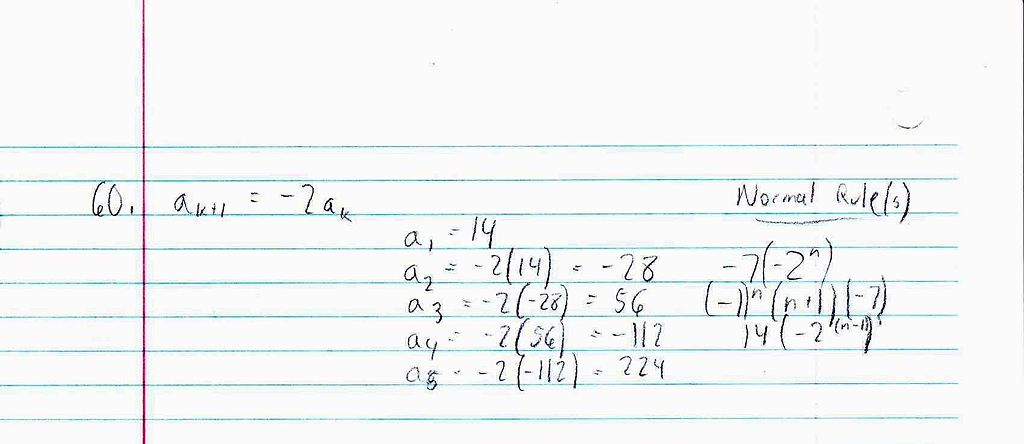 60. aₖ₊₁ = -2aₖ
Normal Rule(s)
a₁ = 14
a₂ = -2(14) = -28
-7(-2ⁿ)
a₃ = -2(-28) = 56
(-1)ⁿ(n+1)(-7)
a₄ = -2(56) = -112
14(-2⁽ⁿ⁻¹⁾)
a₅ = -2(-112) = 224